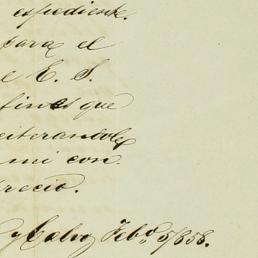 expediente.
para el
e E. S.
fines que
eiterandole
mi con
recio.
y Calvo Febo. 5/858.